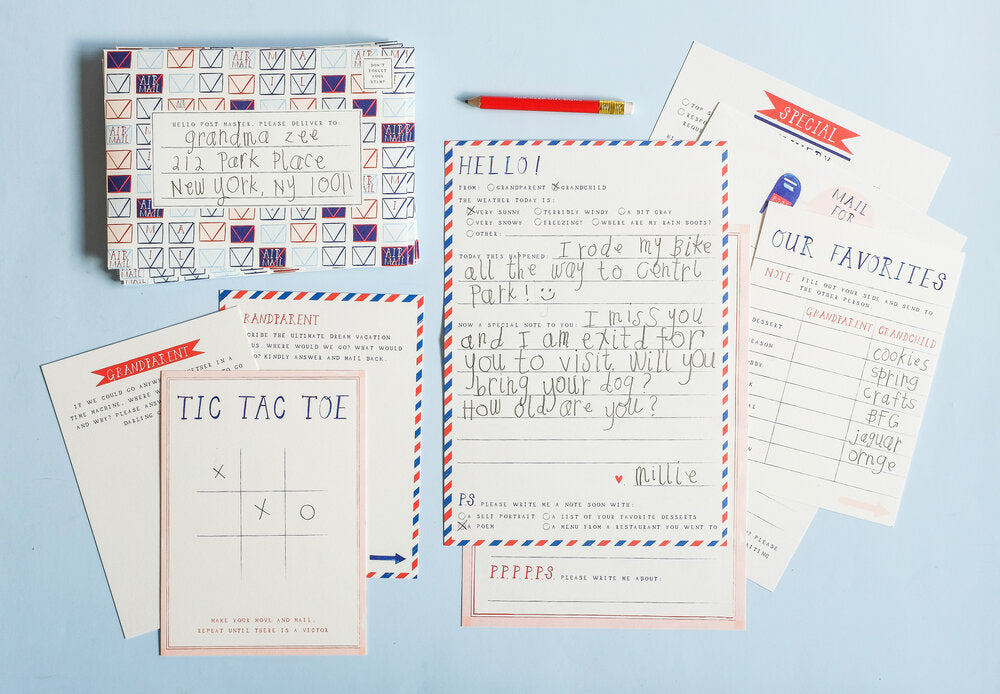 DON'T
FORGET
YOUR
STAMP
HELLO POST MASTER, PLEASE DELIVER TO:
grandma zee
212 Park Place
New york, Ny 10011
AIR MAIL
GRANDPARENT
IF WE COULD GO ANYW
TIME MACHINE, WHERE W
AND WHY? PLEASE ANSW
DARLING G
ETHER IN A
TO GO
RANDPARENT
CRIBE THE ULTIMATE DREAM VACATION
US. WHERE WOULD WE GO? WHAT WOULD
DO? KINDLY ANSWER AND MAIL BACK.
TIC TAC TOE
X
X O
MAKE YOUR MOVE AND MAIL.
REPEAT UNTIL THERE IS A VICTOR
HELLO!
FROM: GRANDPARENT GRANDCHILD
THE WEATHER TODAY IS:
VERY SUNNY TERRIBLY WINDY A BIT GRAY
VERY SNOWY FREEZING! WHERE ARE MY RAIN BOOTS?
OTHER:
TODAY THIS HAPPENED: I rode my Bike
all the way to Centrl
Park! :)
NOW A SPECIAL NOTE TO YOU: I miss you
and I am exitd for
you to visit. Will you
bring your dog?
How old are you?
♥, Millie
P.S. PLEASE WRITE ME A NOTE SOON WITH:
A SELF PORTRAIT A LIST OF YOUR FAVORITE DESSERTS
A POEM A MENU FROM A RESTAURANT YOU WENT TO
P.P.P.P.P.S. PLEASE WRITE ME ABOUT:
TOP
RESPO
REQU
SPECIAL
MAIL
FOR
OUR FAVORITES
NOTE FILL OUT YOUR SIDE AND SEND TO
THE OTHER PERSON.
GRANDPARENT GRANDCHILD
DESSERT cookies
EASON spring
BBY crafts
BFG
jaguar
ornge
? PLEASE
AITING